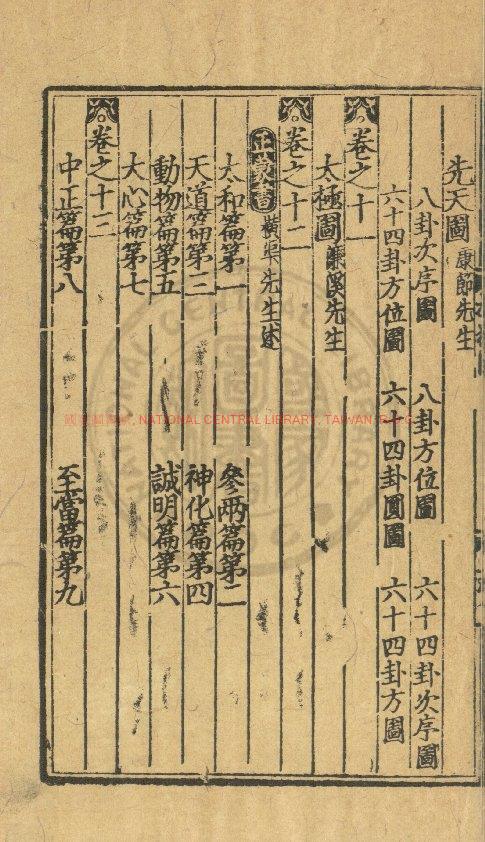 先天圖 康節先生
八卦次序圖 八卦方位圖 六十四卦次序圖
六十四卦方位圖 六十四卦圓圖 六十四卦方圖
卷之十一
太極圖 濂溪先生
卷之十二
正蒙書 橫渠先生述
太和篇第一 參兩篇第二
天道篇第三 神化篇第四
動物篇第五 誠明篇第六
大心篇第七
卷之十三
中正篇第八 至當篇第九
國家圖書館, NATIONAL CENTRAL LIBRARY, TAIWAN, R.O.C.